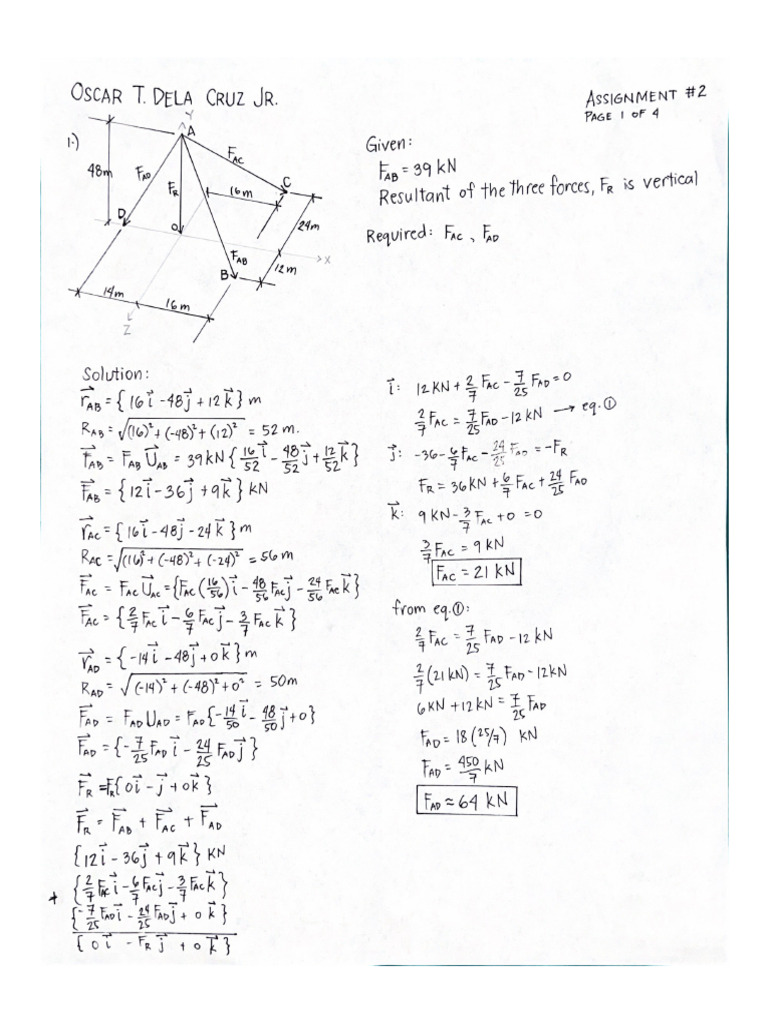 OSCAR T. DELA CRUZ JR.
ASSIGNMENT #2
PAGE 1 OF 4
1.)
Y
A
48m
F_AD
F_AC
F_R
16m
C
D
O
24m
X
F_AB
B
12m
14m
16m
Z
Given:
F_AB = 39 kN
Resultant of the three forces, F_R is vertical
Required: F_AC, F_AD
Solution:
r⃗_AB = { 16i⃗ - 48j⃗ + 12k⃗ } m
R_AB = √((16)² + (-48)² + (12)²) = 52 m.
F⃗_AB = F_AB U⃗_AB = 39 kN { 16/52 i⃗ - 48/52 j⃗ + 12/52 k⃗ }
F⃗_AB = { 12i⃗ - 36j⃗ + 9k⃗ } kN
r⃗_AC = { 16i⃗ - 48j⃗ - 24k⃗ } m
R_AC = √((16)² + (-48)² + (-24)²) = 56 m
F⃗_AC = F_AC U⃗_AC = { F_AC (16/56) i⃗ - 48/56 F_AC j⃗ - 24/56 F_AC k⃗ }
F⃗_AC = { 2/7 F_AC i⃗ - 6/7 F_AC j⃗ - 3/7 F_AC k⃗ }
r⃗_AD = { -14i⃗ - 48j⃗ + 0k⃗ } m
R_AD = √((-14)² + (-48)² + 0²) = 50m
F⃗_AD = F_AD U_AD = F_AD { -14/50 i⃗ - 48/50 j⃗ + 0 }
F⃗_AD = { -7/25 F_AD i⃗ - 24/25 F_AD j⃗ }
F⃗_R = F_R { 0i⃗ - j⃗ + 0k⃗ }
F⃗_R = F⃗_AB + F⃗_AC + F⃗_AD
{ 12i⃗ - 36j⃗ + 9k⃗ } kN
+ { 2/7 F_AC i⃗ - 6/7 F_AC j⃗ - 3/7 F_AC k⃗ }
{ -7/25 F_AD i⃗ - 24/25 F_AD j⃗ + 0k⃗ }
{ 0i⃗ - F_R j⃗ + 0k⃗ }
i⃗: 12 kN + 2/7 F_AC - 7/25 F_AD = 0
2/7 F_AC = 7/25 F_AD - 12 kN → eq.①
j⃗: -36 - 6/7 F_AC - 24/25 F_AD = -F_R
F_R = 36 kN + 6/7 F_AC + 24/25 F_AD
k⃗: 9 kN - 3/7 F_AC + 0 = 0
3/7 F_AC = 9 kN
F_AC = 21 kN
from eq.①:
2/7 F_AC = 7/25 F_AD - 12 kN
2/7 (21 kN) = 7/25 F_AD - 12kN
6 kN + 12 kN = 7/25 F_AD
F_AD = 18 (25/7) kN
F_AD = 450/7 kN
F_AD ≈ 64 kN